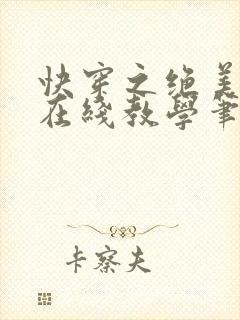 快穿之绝美
在线教学笔
卡察夫